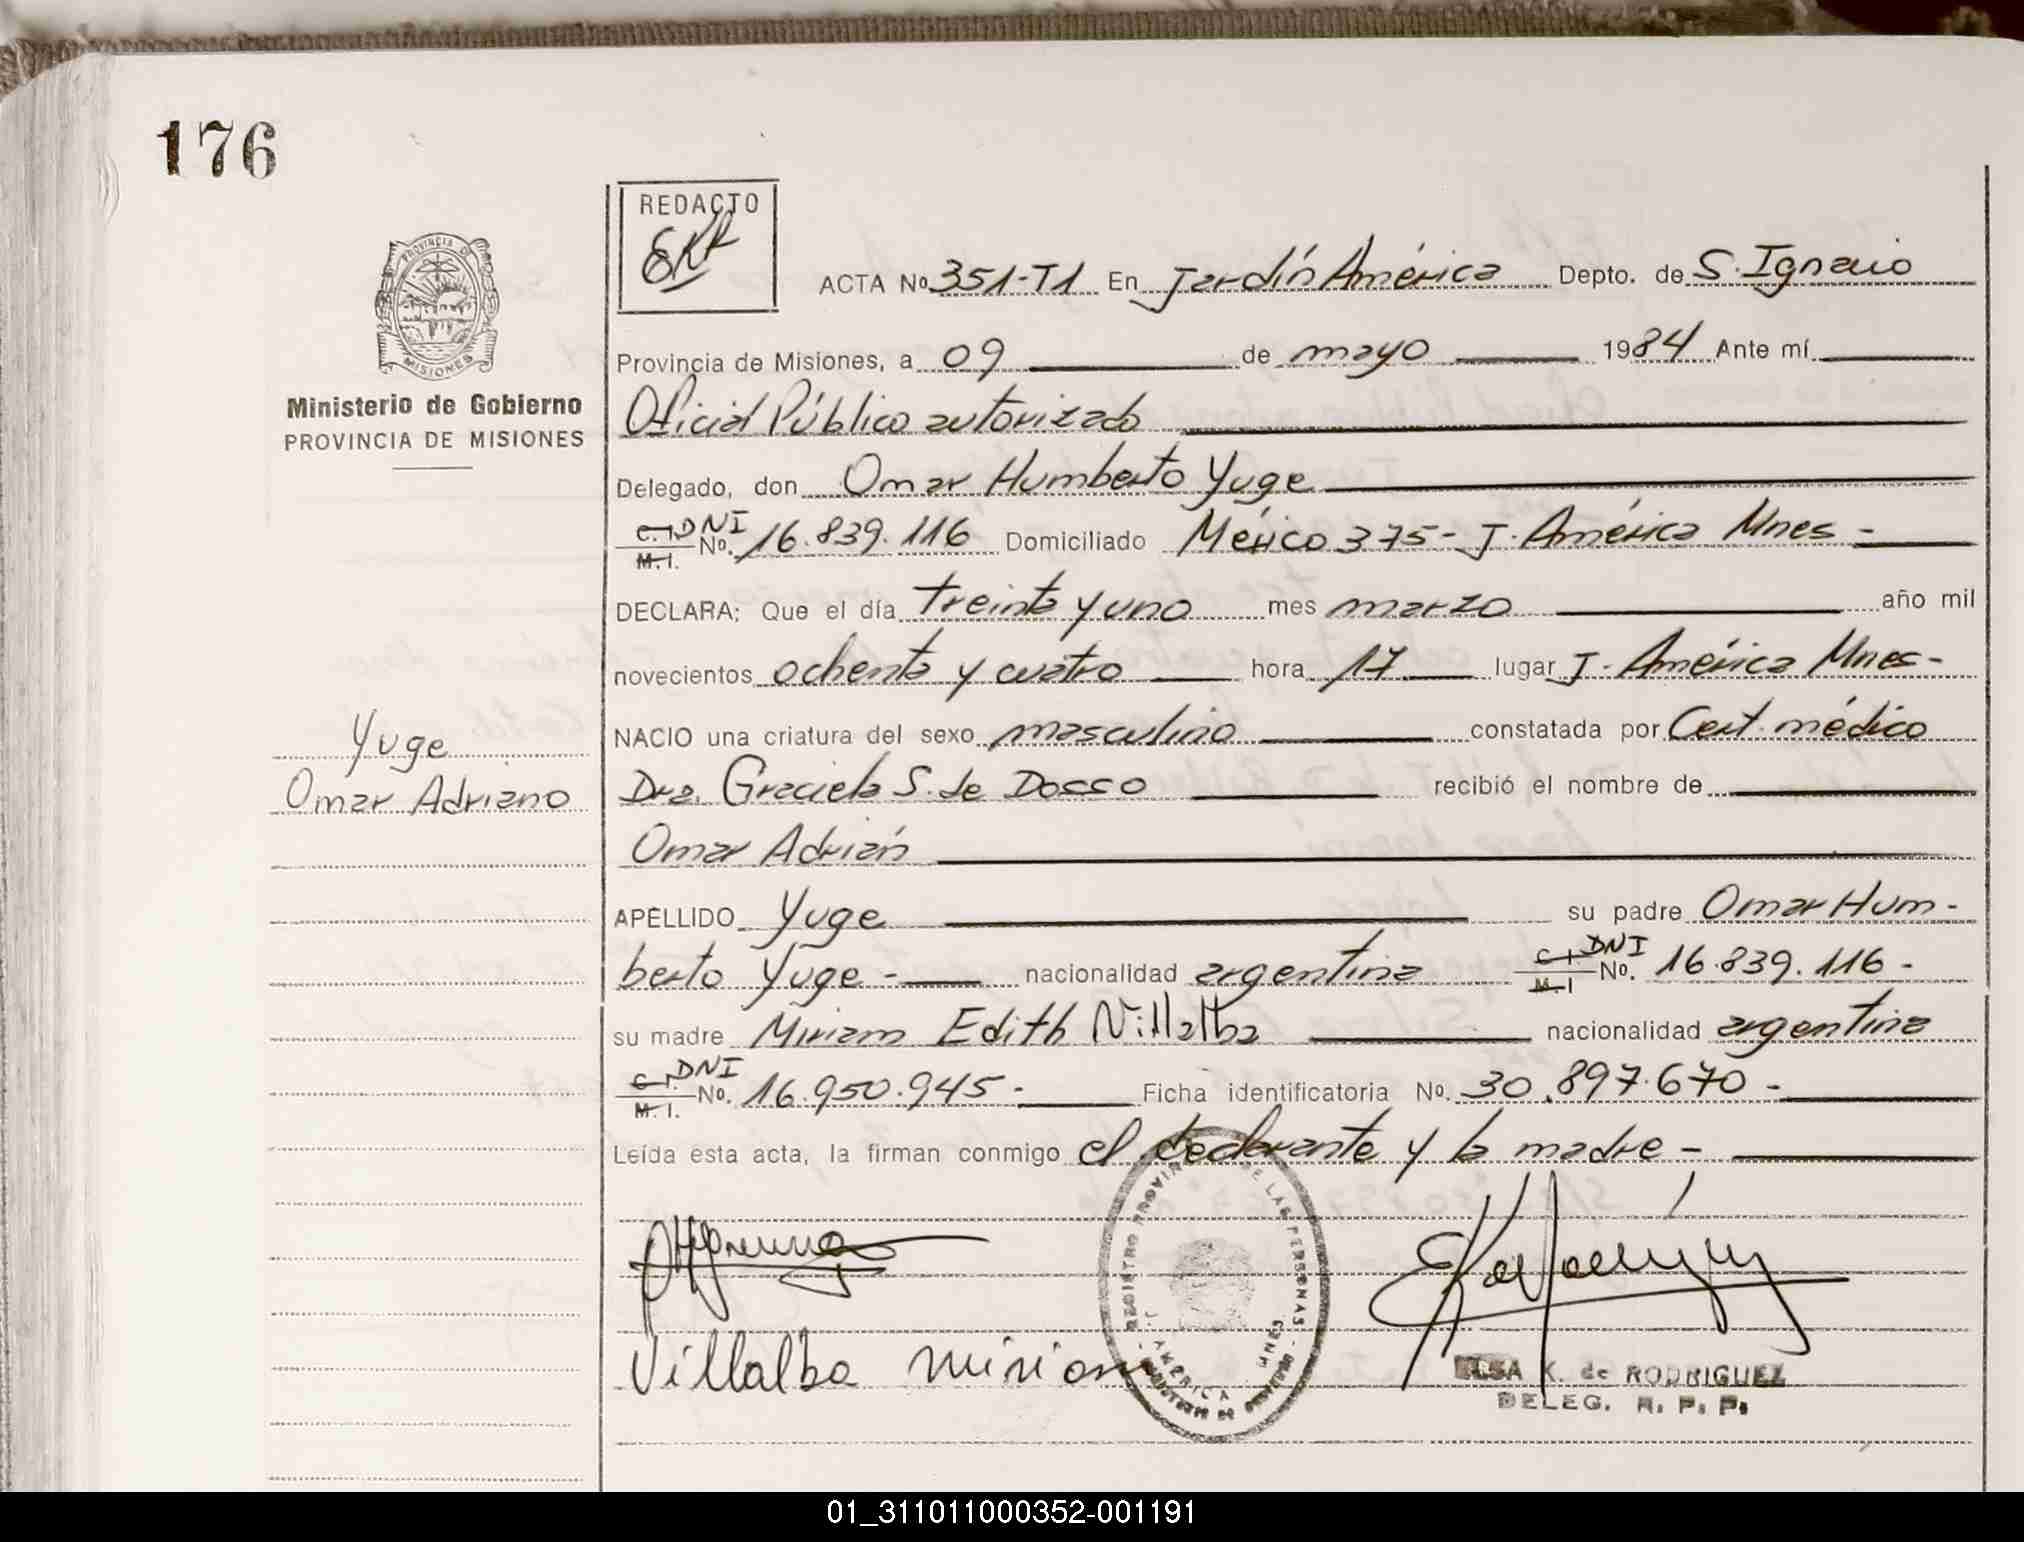 176
REDACTO
PROVINCIA DE
MISIONES
ACTA No 351-T1 En Jardín América Depto. de S. Ignacio
Provincia de Misiones, a 09 de mayo 1984 Ante mí
Ministerio de Gobierno
PROVINCIA DE MISIONES
Oficial Público autorizado
Delegado, don Omar Humberto Yuge
C. I. DNI
M. I. No. 16.839.116 Domiciliado México 375- J. América Mnes -
DECLARA; Que el día treinta y uno mes marzo año mil
novecientos ochenta y cuatro hora 17 lugar J. América Mnes-
Yuge
NACIO una criatura del sexo masculino constatada por Cert. médico
Omar Adriano
Dra. Graciela S. de Dosso recibió el nombre de
Omar Adrián
APELLIDO Yuge su padre Omar Hum-
berto Yuge - nacionalidad argentina C. I. DNI M. I No. 16.839.116-
su madre Miriam Edith Villalba nacionalidad argentina
C. I. DNI
M. I. No. 16.950.945- Ficha identificatoria No. 30.897.670-
Leída esta acta, la firman conmigo el declarante y la madre -
REGISTRO PROVINCIAL DE LAS PERSONAS
J. AMERICA
Villalba Miriam
ELSA K. de RODRIGUEZ
DELEG. R. P. P.
01_311011000352-001191